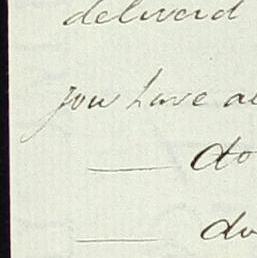 deliverd
you have al
—— do
—— do